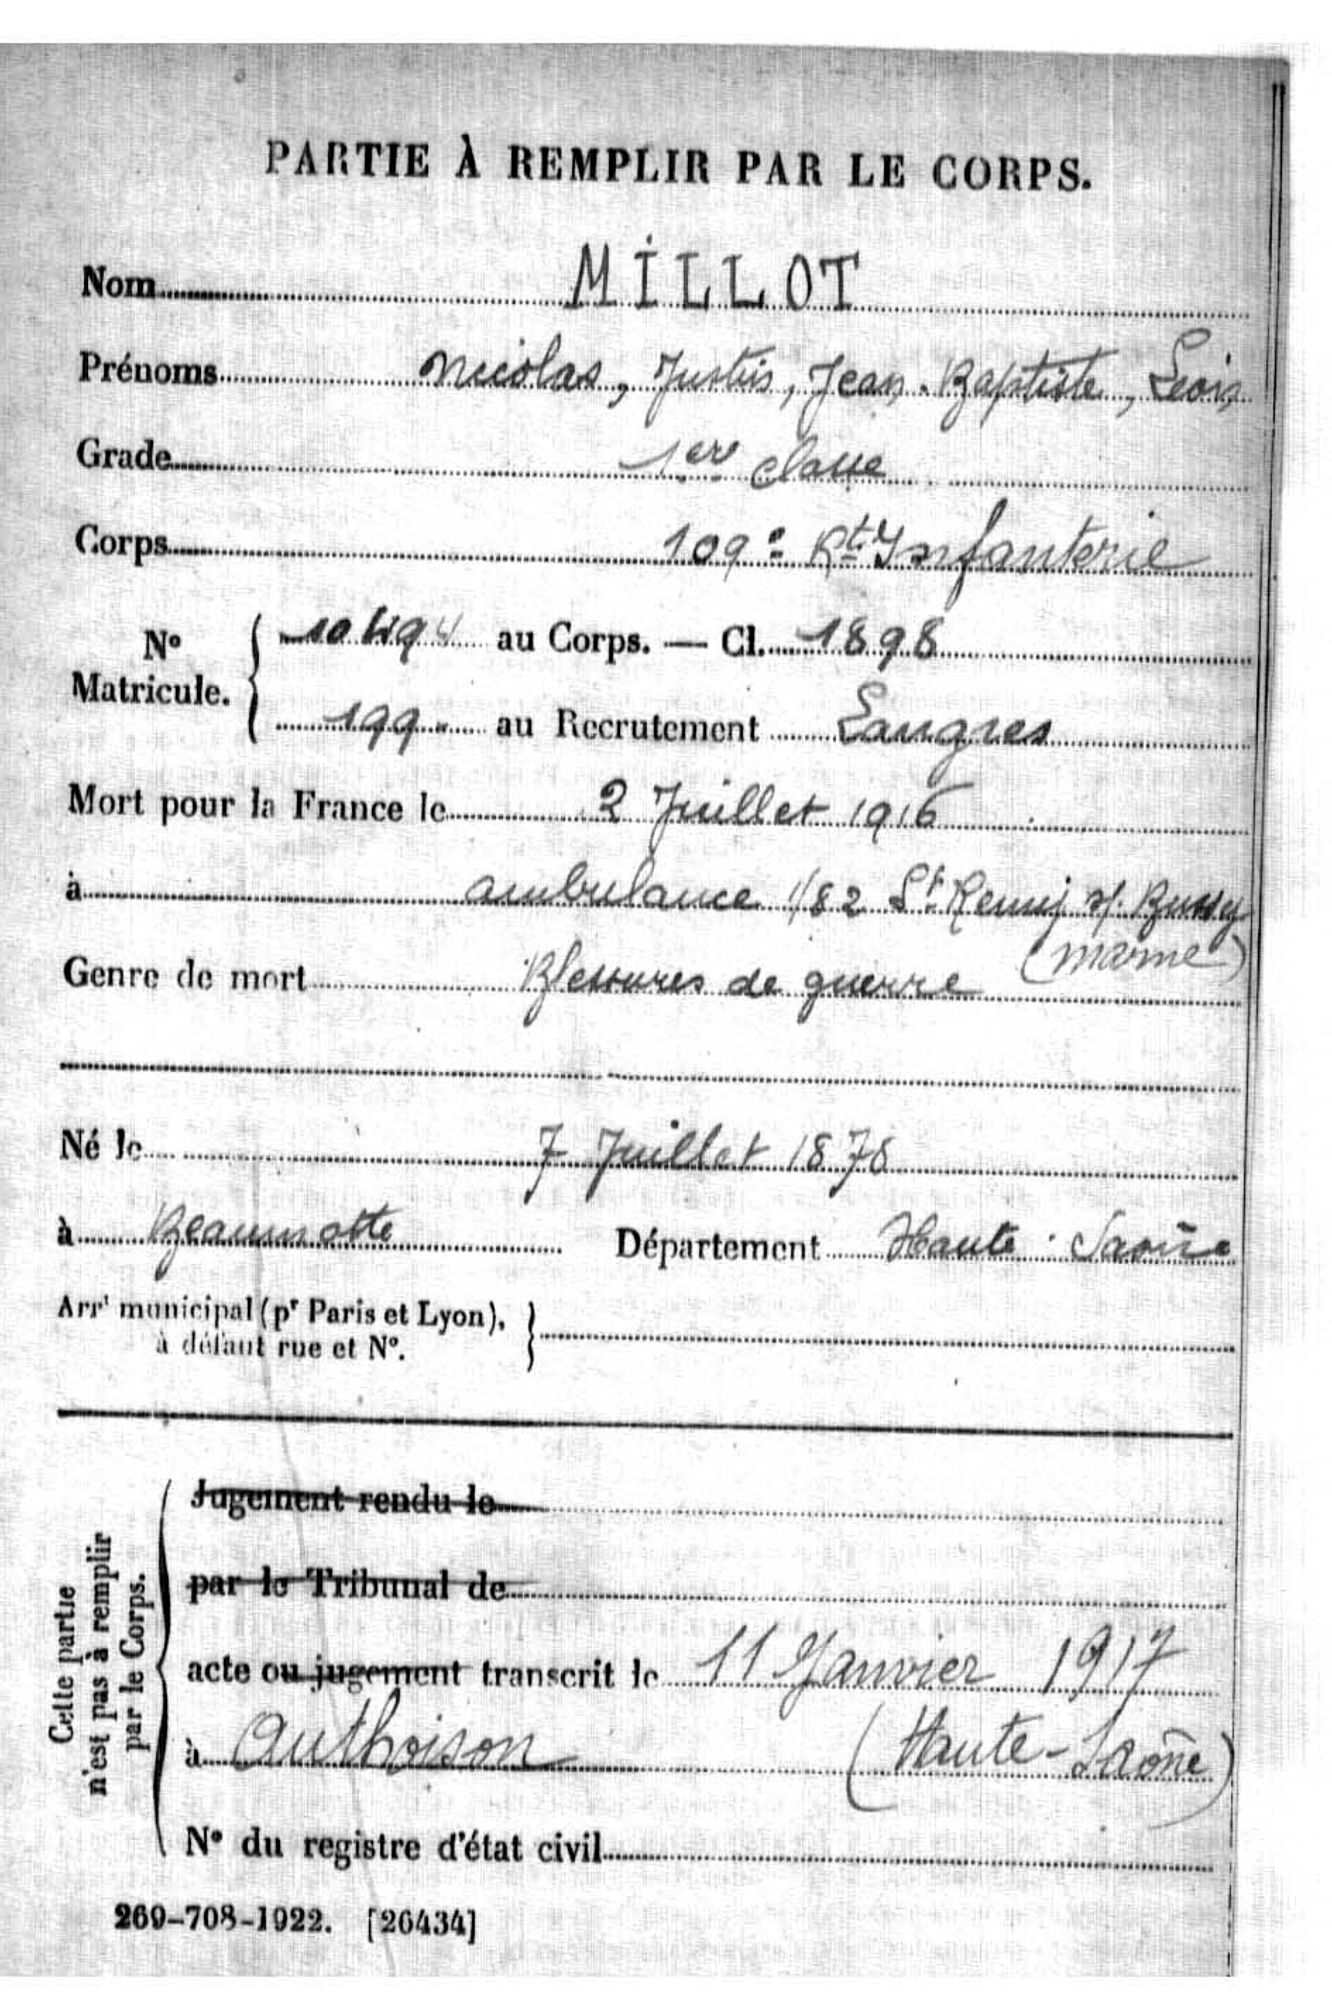 PARTIE À REMPLIR PAR LE CORPS.
Nom MILLOT
Prénoms Nicolas, Justin, Jean-Baptiste,
Grade 1ère classe
Corps 109e Rt Infanterie
No Matricule. au Corps. — Cl. 1898
199 au Recrutement Langres
Mort pour la France le 2 Juillet 1916
à ambulance 1/82 St Remy s/. Bussy
(Marne)
Genre de mort Blessures de guerre
Né le 7 Juillet 1878
à Beaumotte Département Haute-Saône
Arrt municipal (pr Paris et Lyon),
à défaut rue et No.
Cette partie
n'est pas à remplir
par le Corps.
Jugement rendu le
par le Tribunal de
acte ou jugement transcrit le 11 Janvier 1917
à Authoison (Haute-Saône)
No du registre d'état civil
269-708-1922. [26434]